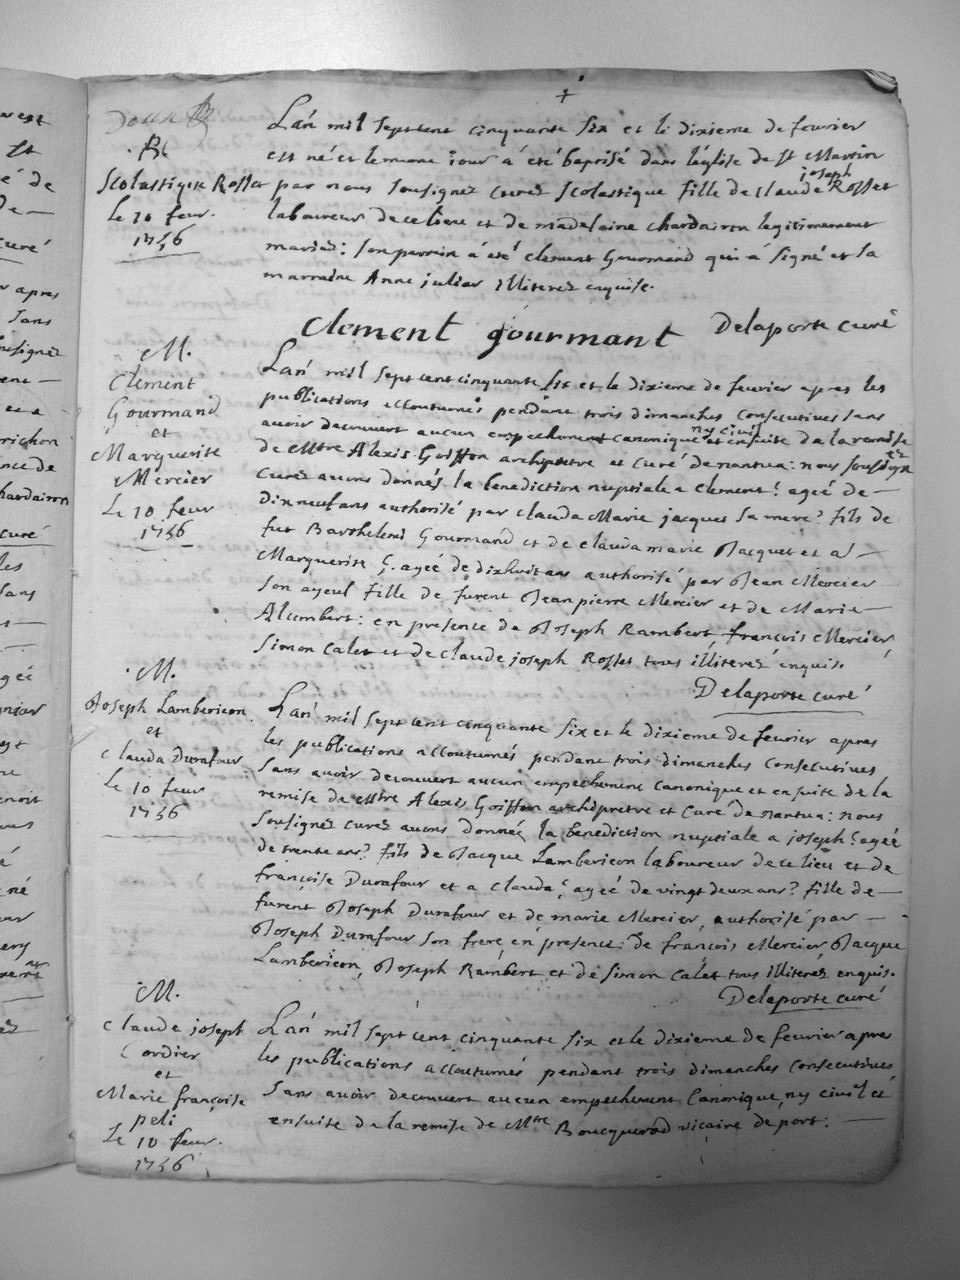 B.
Scolastique Rosset
Le 10 feur.
1756
L'an mil sept cent cinquante six et le dixieme de feurier
est né et le meme iour à été baptisé dans l'église de st Martin
par nous sousignez curez scolastique fille de claude joseph Rosset
laboureur de ce lieu et de madelaine chardairon legitimement
mariez: son parrain à été clement Gourmand qui à signé et sa
marraine Anne julier illiterez enquise.
clement gourmant Delaporte curé
M.
Clement
Gourmand
et
Marguerite
Mercier
Le 10 feur
1756
L'an mil sept cent cinquante six et le dixieme de feurier apres les
publications accoutumés pendant trois dimanches consecutives sans
auoir decouuert aucun empechement canonique ny ciuil et ensuite de la remise
de Mtre Alexis Goiffon archipretre et curé de nantua: nous sousignez
curez auons donnés la benediction nuptiale a clement: ageé de —
dixneuf ans authorisé par clauda Marie jacques sa mere? fils de
fut Barthelemi Gourmand et de clauda marie Jacquet et a —
Marguerite ageé de dixhuit ans authorisé par Jean Mercier —
son ayeul fille de furent Jean pierre Mercier et de Marie —
Alombert: en presence de Joseph Rambert françois Mercier,
Simon Calet et de claude joseph Rosset tous illiterez enquis.
Delaporte curé
M.
Joseph Lambericon
et
clauda Durafour
Le 10 feur
1756
L'an mil sept cent cinquante six et le dixieme de feurier apres
les publications accoutumés pendant trois dimanches consecutives
sans auoir decouuert aucun empechement canonique et ensuite de la
remise de Mtre Alexis Goiffon archipretre et curé de nantua: nous
sousignez curez auons donnée la benediction nuptiale a joseph: ageé
de trente ans? fils de Jacque Lambericon laboureur de ce lieu et de
françoise Durafour et a clauda: ageé de vingt deux ans? fille de —
furent Joseph Durafour et de marie Mercier, authorisé par —
Joseph Durafour son frere en presence: de françois Mercier, Jacque
Lambericon, Joseph Rambert et de Simon Calet tous illiterez enquis.
Delaporte curé
M.
claude joseph
Cordier
et
Marie françoise
peli
Le 10 feur.
1756
L'an mil sept cent cinquante six et le dixieme de feurier apres
les publications accoutumés pendant trois dimanches consecutives
sans auoir decouuert aucun empechement Canonique, ny ciuil et
ensuite de la remise de Mtre Boucquerod vicaire de port: —